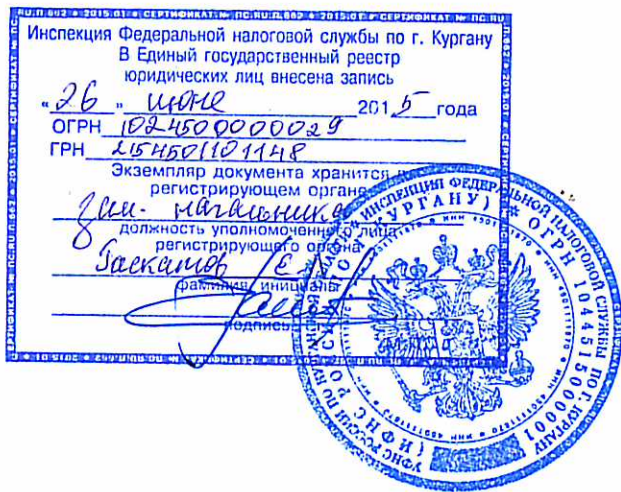 Инспекция Федеральной налоговой службы по г. Кургану
В Единый государственный реестр
юридических лиц внесена запись
"26" июне 2015 года
ОГРН 1024500000029
ГРН 2154501101148
Экземпляр документа хранится в
регистрирующем органе
зам. начальника
должность уполномоченного лица
регистрирующего органа
Е
фамилия, инициалы
подпись
УФНС РОССИИ ПО ИНСПЕКЦИЯ ФЕДЕРАЛЬНОЙ НАЛОГОВОЙ СЛУЖБЫ ПО Г. КУРГАНУ
(ИФНС РОССИИ ПО Г. КУРГАНУ) * ОГРН 1044515000001